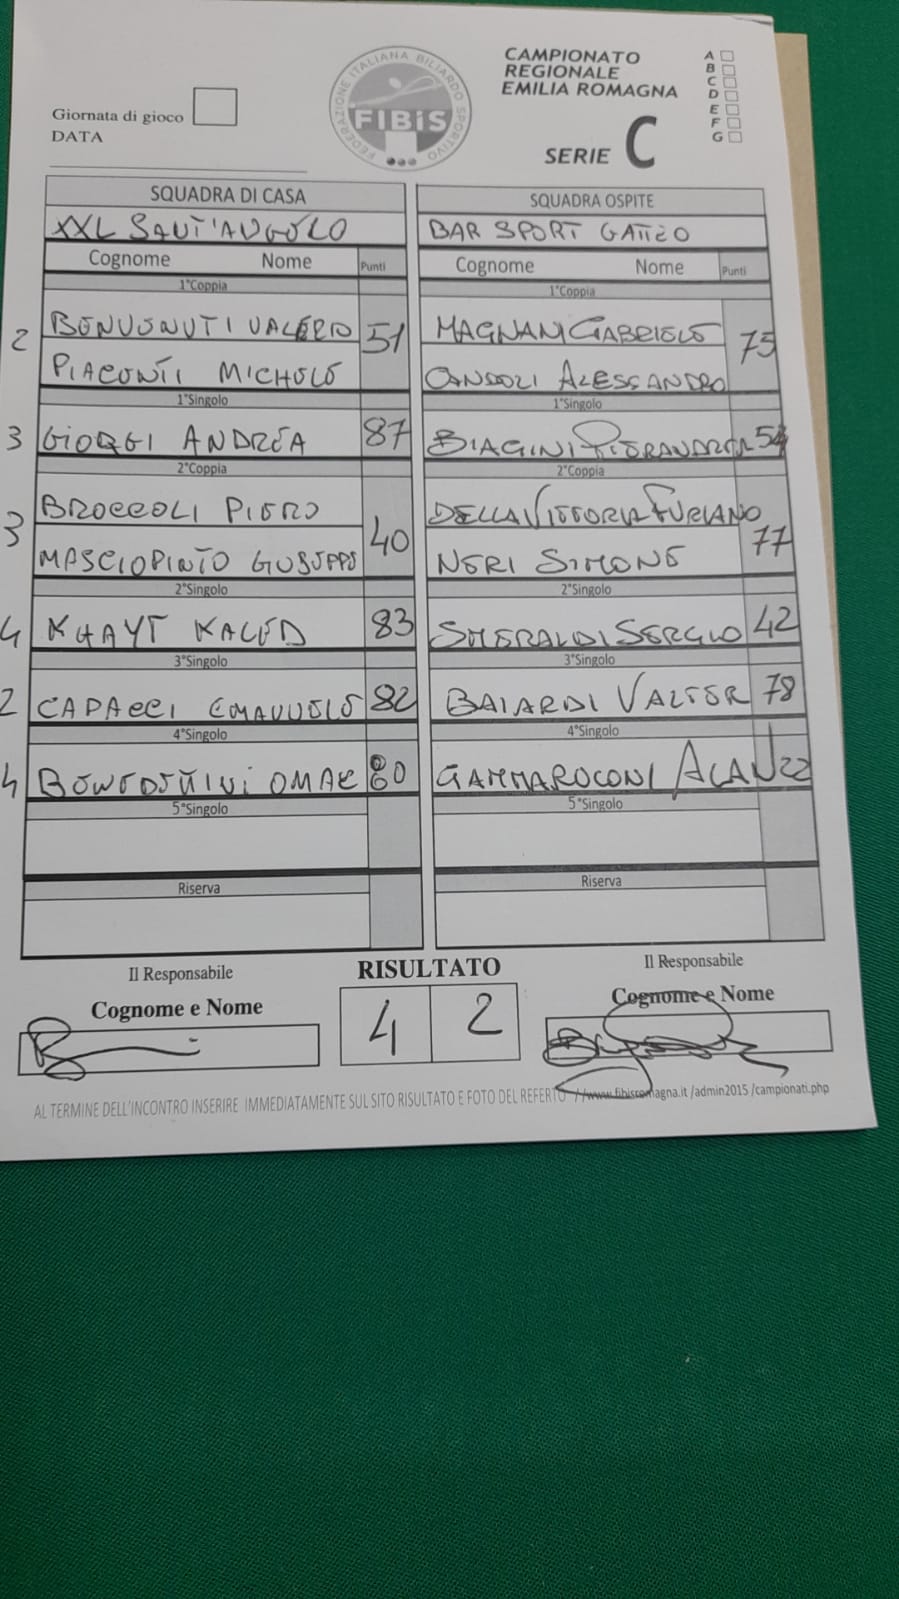 Giornata di gioco
DATA
FEDERAZIONE ITALIANA BILIARDO SPORTIVO
FIBiS
CAMPIONATO
REGIONALE
EMILIA ROMAGNA
SERIE C
A
B
C
D
E
F
G
SQUADRA DI CASA
SQUADRA OSPITE
XXL SANT'ANGELO
BAR SPORT GATTEO
Cognome Nome Punti
Cognome Nome Punti
1°Coppia
1°Coppia
2 BENVENUTI VALERIO 51
PIACONTI MICHELE
MAGNANI GABRIELE 75
CANDOLI ALESSANDRO
1°Singolo
1°Singolo
3 GIORGI ANDREA 87
BIAGINI PIERANDREA 54
2°Coppia
2°Coppia
3 BROCCOLI PIERO 40
MASCIOPINTO GIUSEPPE
DELLA VITTORIA FURIANO 77
NERI SIMONE
2°Singolo
2°Singolo
4 KHAYT KALED 83
SMERALDI SERGIO 42
3°Singolo
3°Singolo
2 CAPACCI EMANUELE 82
BAIARDI VALTER 78
4°Singolo
4°Singolo
4 BENEDETTINI OMAR 80
GAMMARUCONI ALAN 22
5°Singolo
5°Singolo
Riserva
Riserva
Il Responsabile
RISULTATO
Il Responsabile
Cognome e Nome
4 2
Cognome e Nome
AL TERMINE DELL'INCONTRO INSERIRE IMMEDIATAMENTE SUL SITO RISULTATO E FOTO DEL REFERTO //www.fibisromagna.it /admin2015 /campionati.php